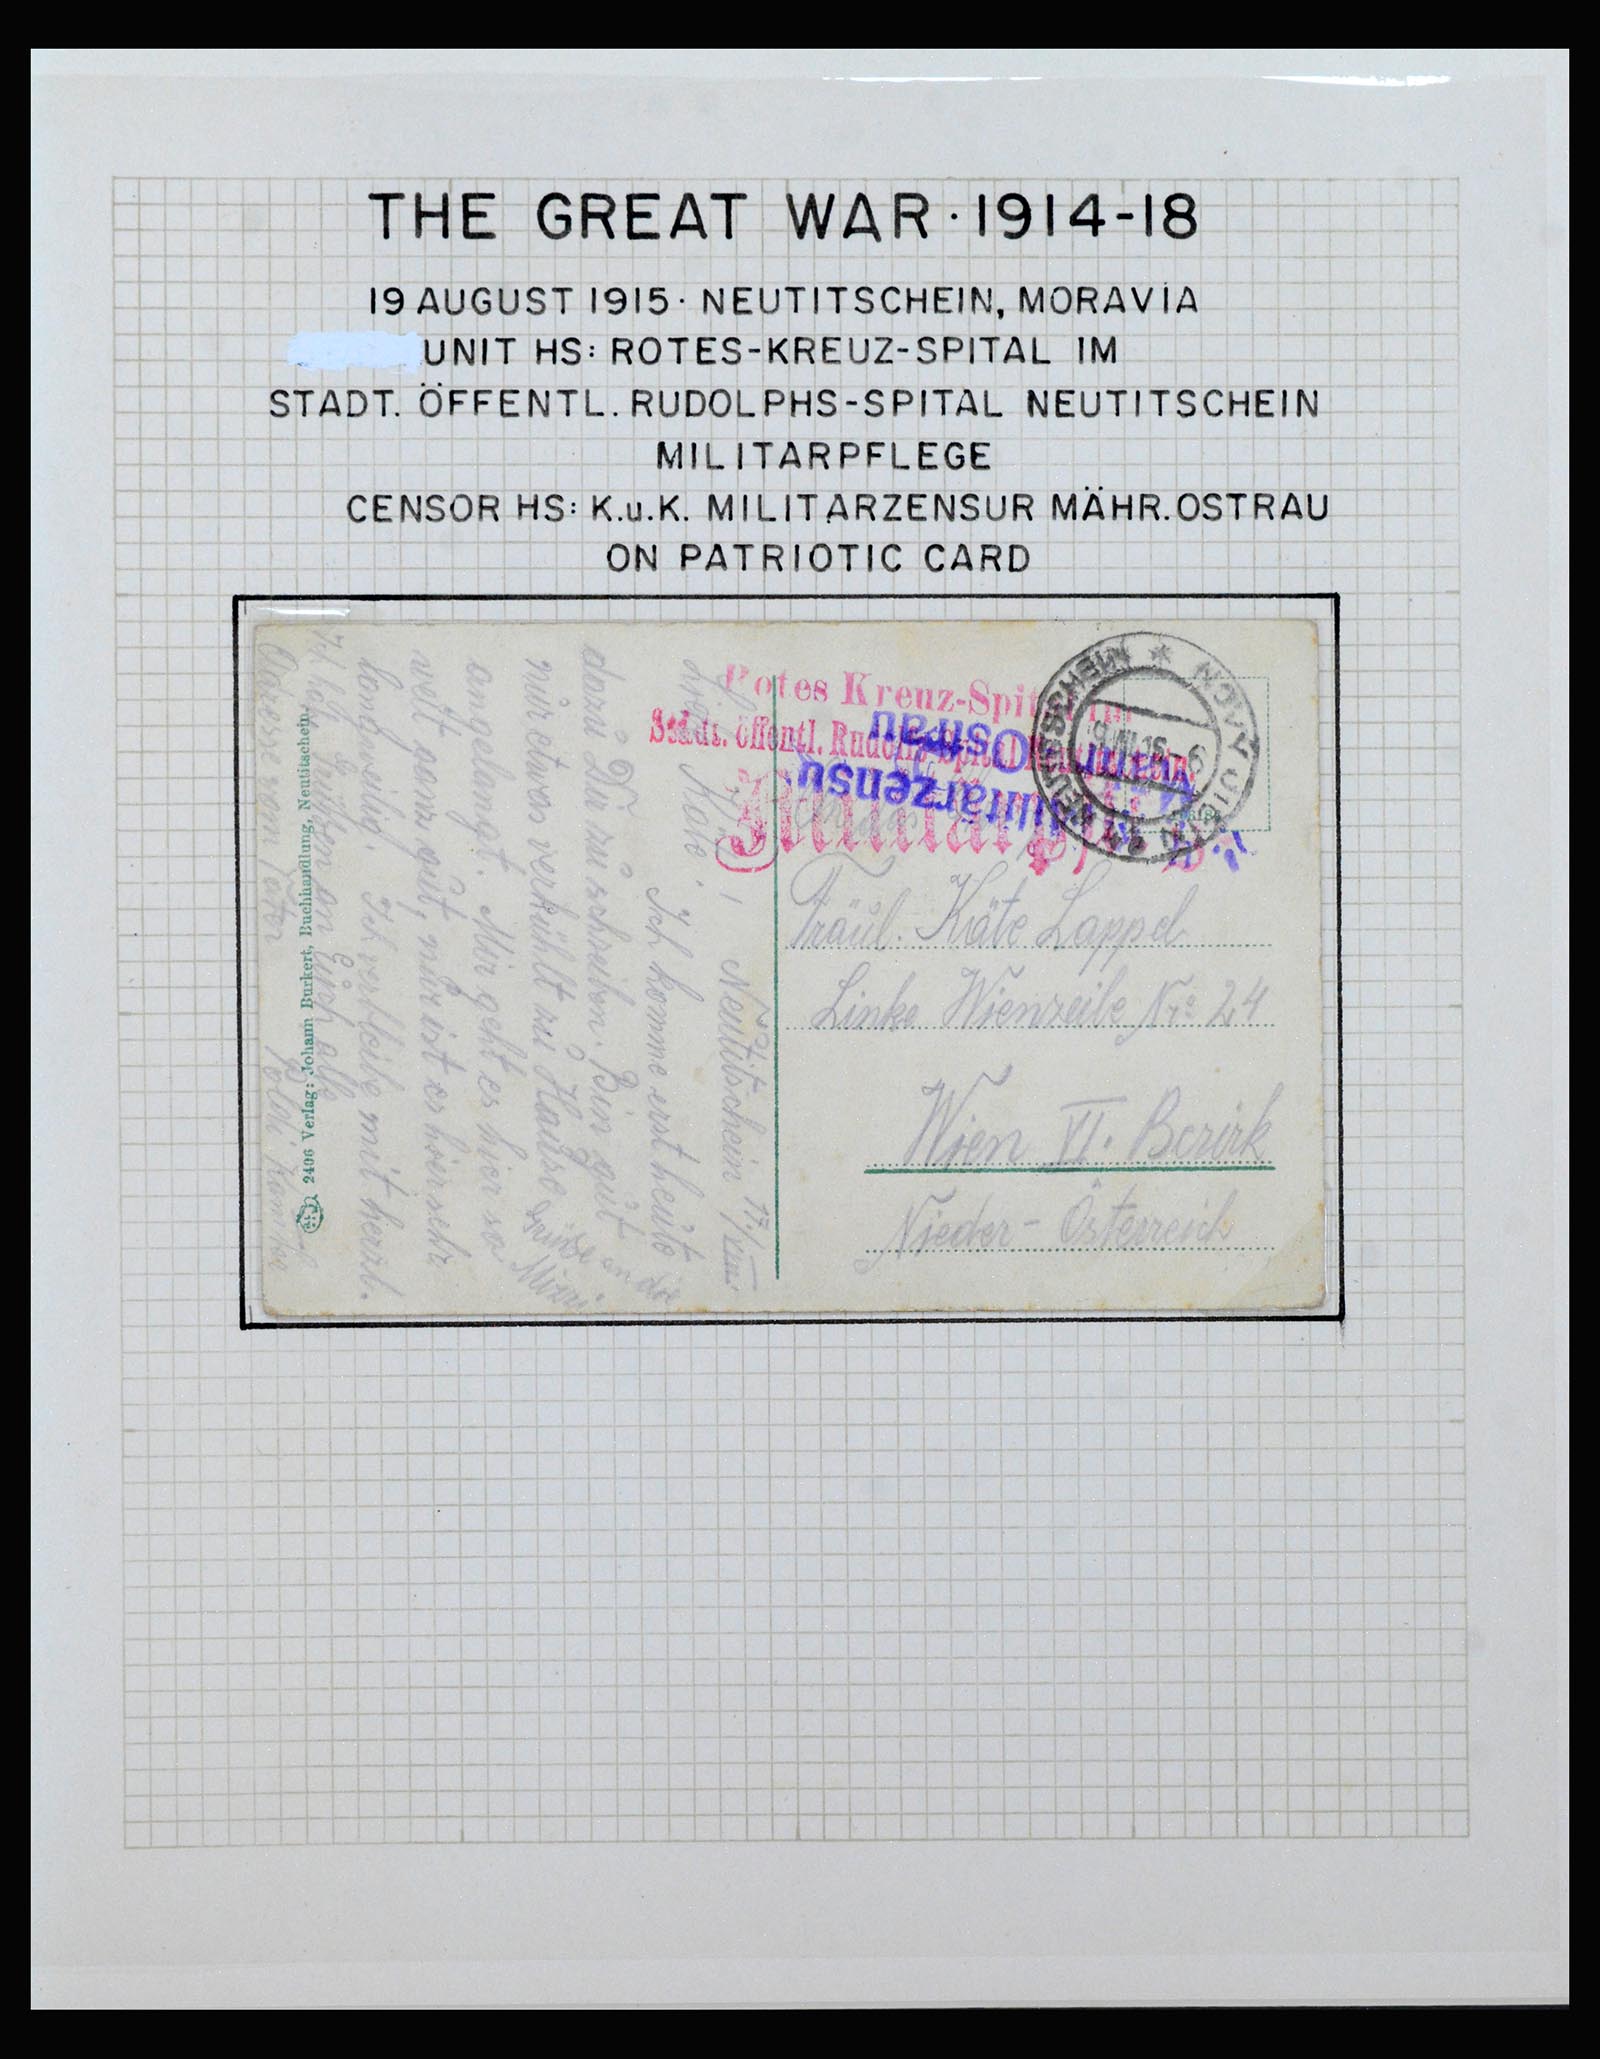 THE GREAT WAR · 1914-18
19 AUGUST 1915 · NEUTITSCHEIN, MORAVIA
UNIT HS: ROTES-KREUZ-SPITAL IM
STADT. ÖFFENTL. RUDOLPHS-SPITAL NEUTITSCHEIN
MILITARPFLEGE
CENSOR HS: K.u.K. MILITARZENSUR MÄHR. OSTRAU
ON PATRIOTIC CARD
Rotes Kreuz-Spital im
Städt. öffentl. Rudolfs-Spital Neutitschein.
Militärpfl
Militärzensu
Ostrau
Fräul. Käte Lappel
Linke Wienzeile Nro 24
Wien VI. Bezirk
Nieder-Österreich
Neutitschein 17./VIII.
Ich komme erst heute
dazu Dir zu schreiben. Bin gut
angelangt. Mir geht es hier so
weit ganz gut, nur ist es hier sehr
langweilig. Ich verbleibe mit herzl.
Adresse vom Vater
2406 Verlag: Johann Burkert, Buchhandlung, Neutitschein.